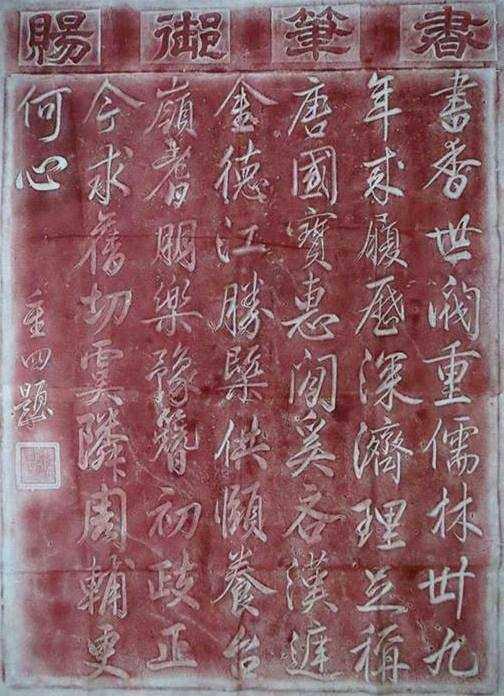 書筆御賜
書香世閥重儒林卅九
年來履歷深濟理足稱
唐國寶惠閭奚吝漢
金德江勝槩供頤養台
嶺耆朋樂豫簪初政正
今求舊切虞隣周輔更
何心
重四題